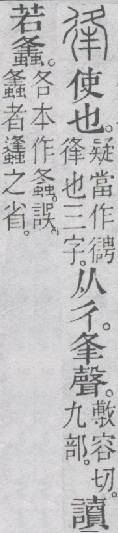 使也。疑當作𢓳
𢓱也三字。从彳。夆聲。敷容切。
九部。讀
若𧒒。各本作螽。誤。
𧒒者蠭之省。